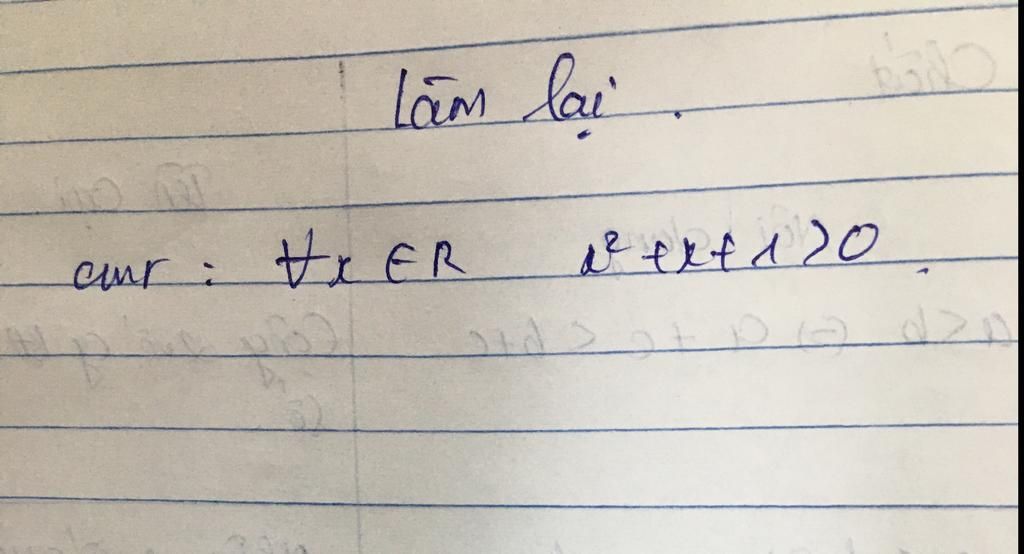 làm lại.
cmr : ∀x ∈ R x² + x + 1 > 0.